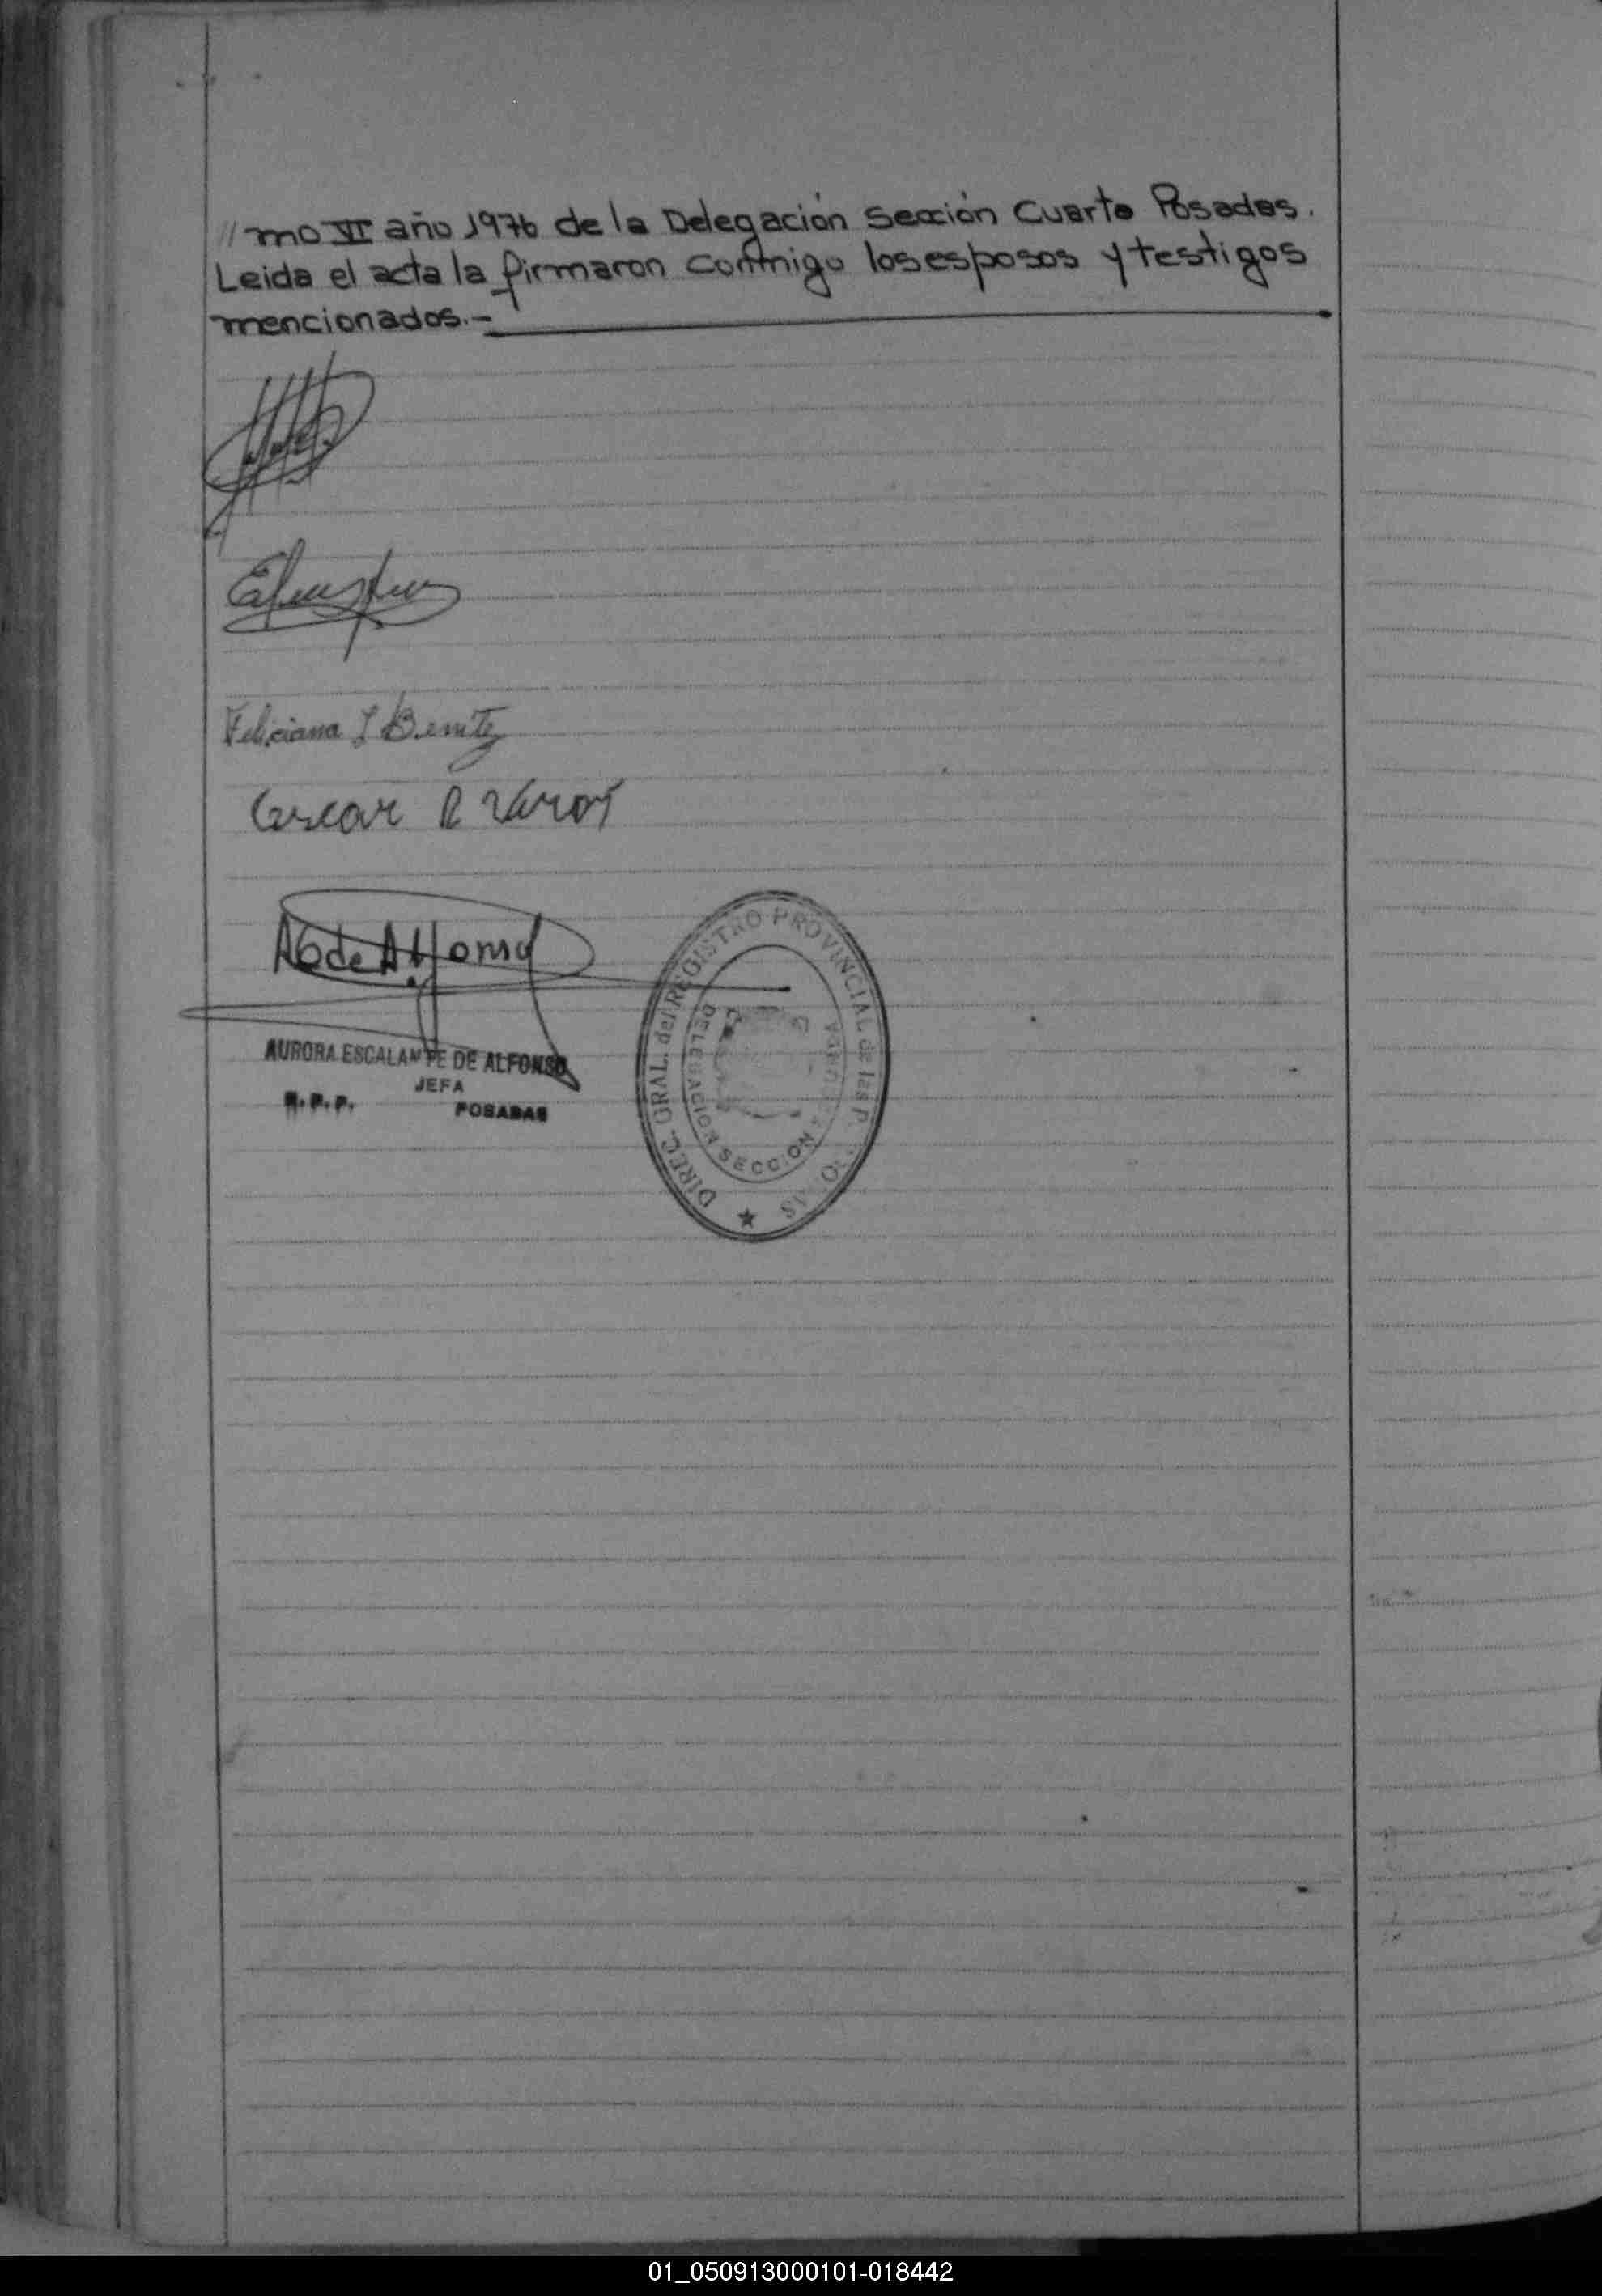 //mo VI año 1976 de la Delegación Sección Cuarta Posadas.
Leida el acta la firmaron conmigo los esposos y testigos
mencionados.-
Feliciana I Benitez
Oscar R
AG de Alfonso
AURORA ESCALANTE DE ALFONSO
JEFA
R.P.P. POSADAS
DIREC. GRAL. del REGISTRO PROVINCIAL de las
DELEGACION SECCION
01_050913000101-018442